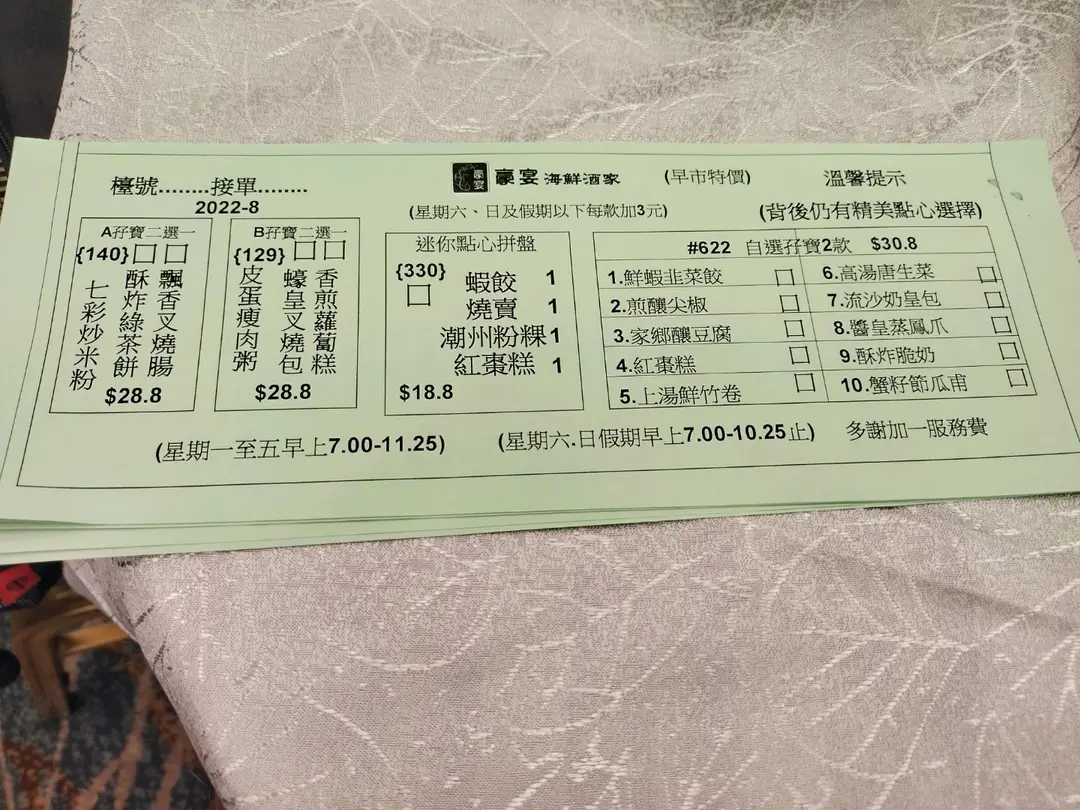 檯號........接單........
2022-8
豪宴
豪宴 海鮮酒家
(早市特價)
溫馨提示
(星期六、日及假期以下每款加3元)
(背後仍有精美點心選擇)
A孖寶二選一
{140}□□
飄香叉燒腸
酥炸綠茶餅
七彩炒米粉
$28.8
B孖寶二選一
{129}□□
香煎蘿蔔糕
蠔皇叉燒包
皮蛋瘦肉粥
$28.8
迷你點心拼盤
{330}
□
蝦餃 1
燒賣 1
潮州粉粿 1
紅棗糕 1
$18.8
#622 自選孖寶2款 $30.8
1.鮮蝦韭菜餃 □
2.煎釀尖椒 □
3.家鄉釀豆腐 □
4.紅棗糕 □
5.上湯鮮竹卷 □
6.高湯唐生菜 □
7.流沙奶皇包 □
8.醬皇蒸鳳爪 □
9.酥炸脆奶 □
10.蟹籽節瓜甫 □
(星期一至五早上7.00-11.25)
(星期六.日假期早上7.00-10.25止)
多謝加一服務費